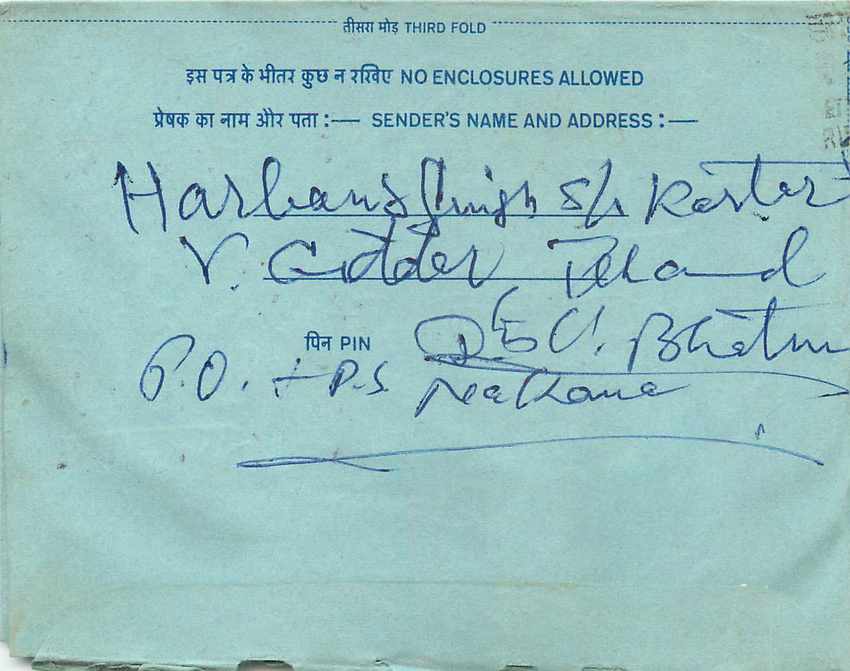 तीसरा मोड़ THIRD FOLD
इस पत्र के भीतर कुछ न रखिए NO ENCLOSURES ALLOWED
प्रेषक का नाम और पता :— SENDER'S NAME AND ADDRESS :—
Harbans Singh S/o Kartar
V. Gidder
पिन PIN
P.O. + P.S. Nathana